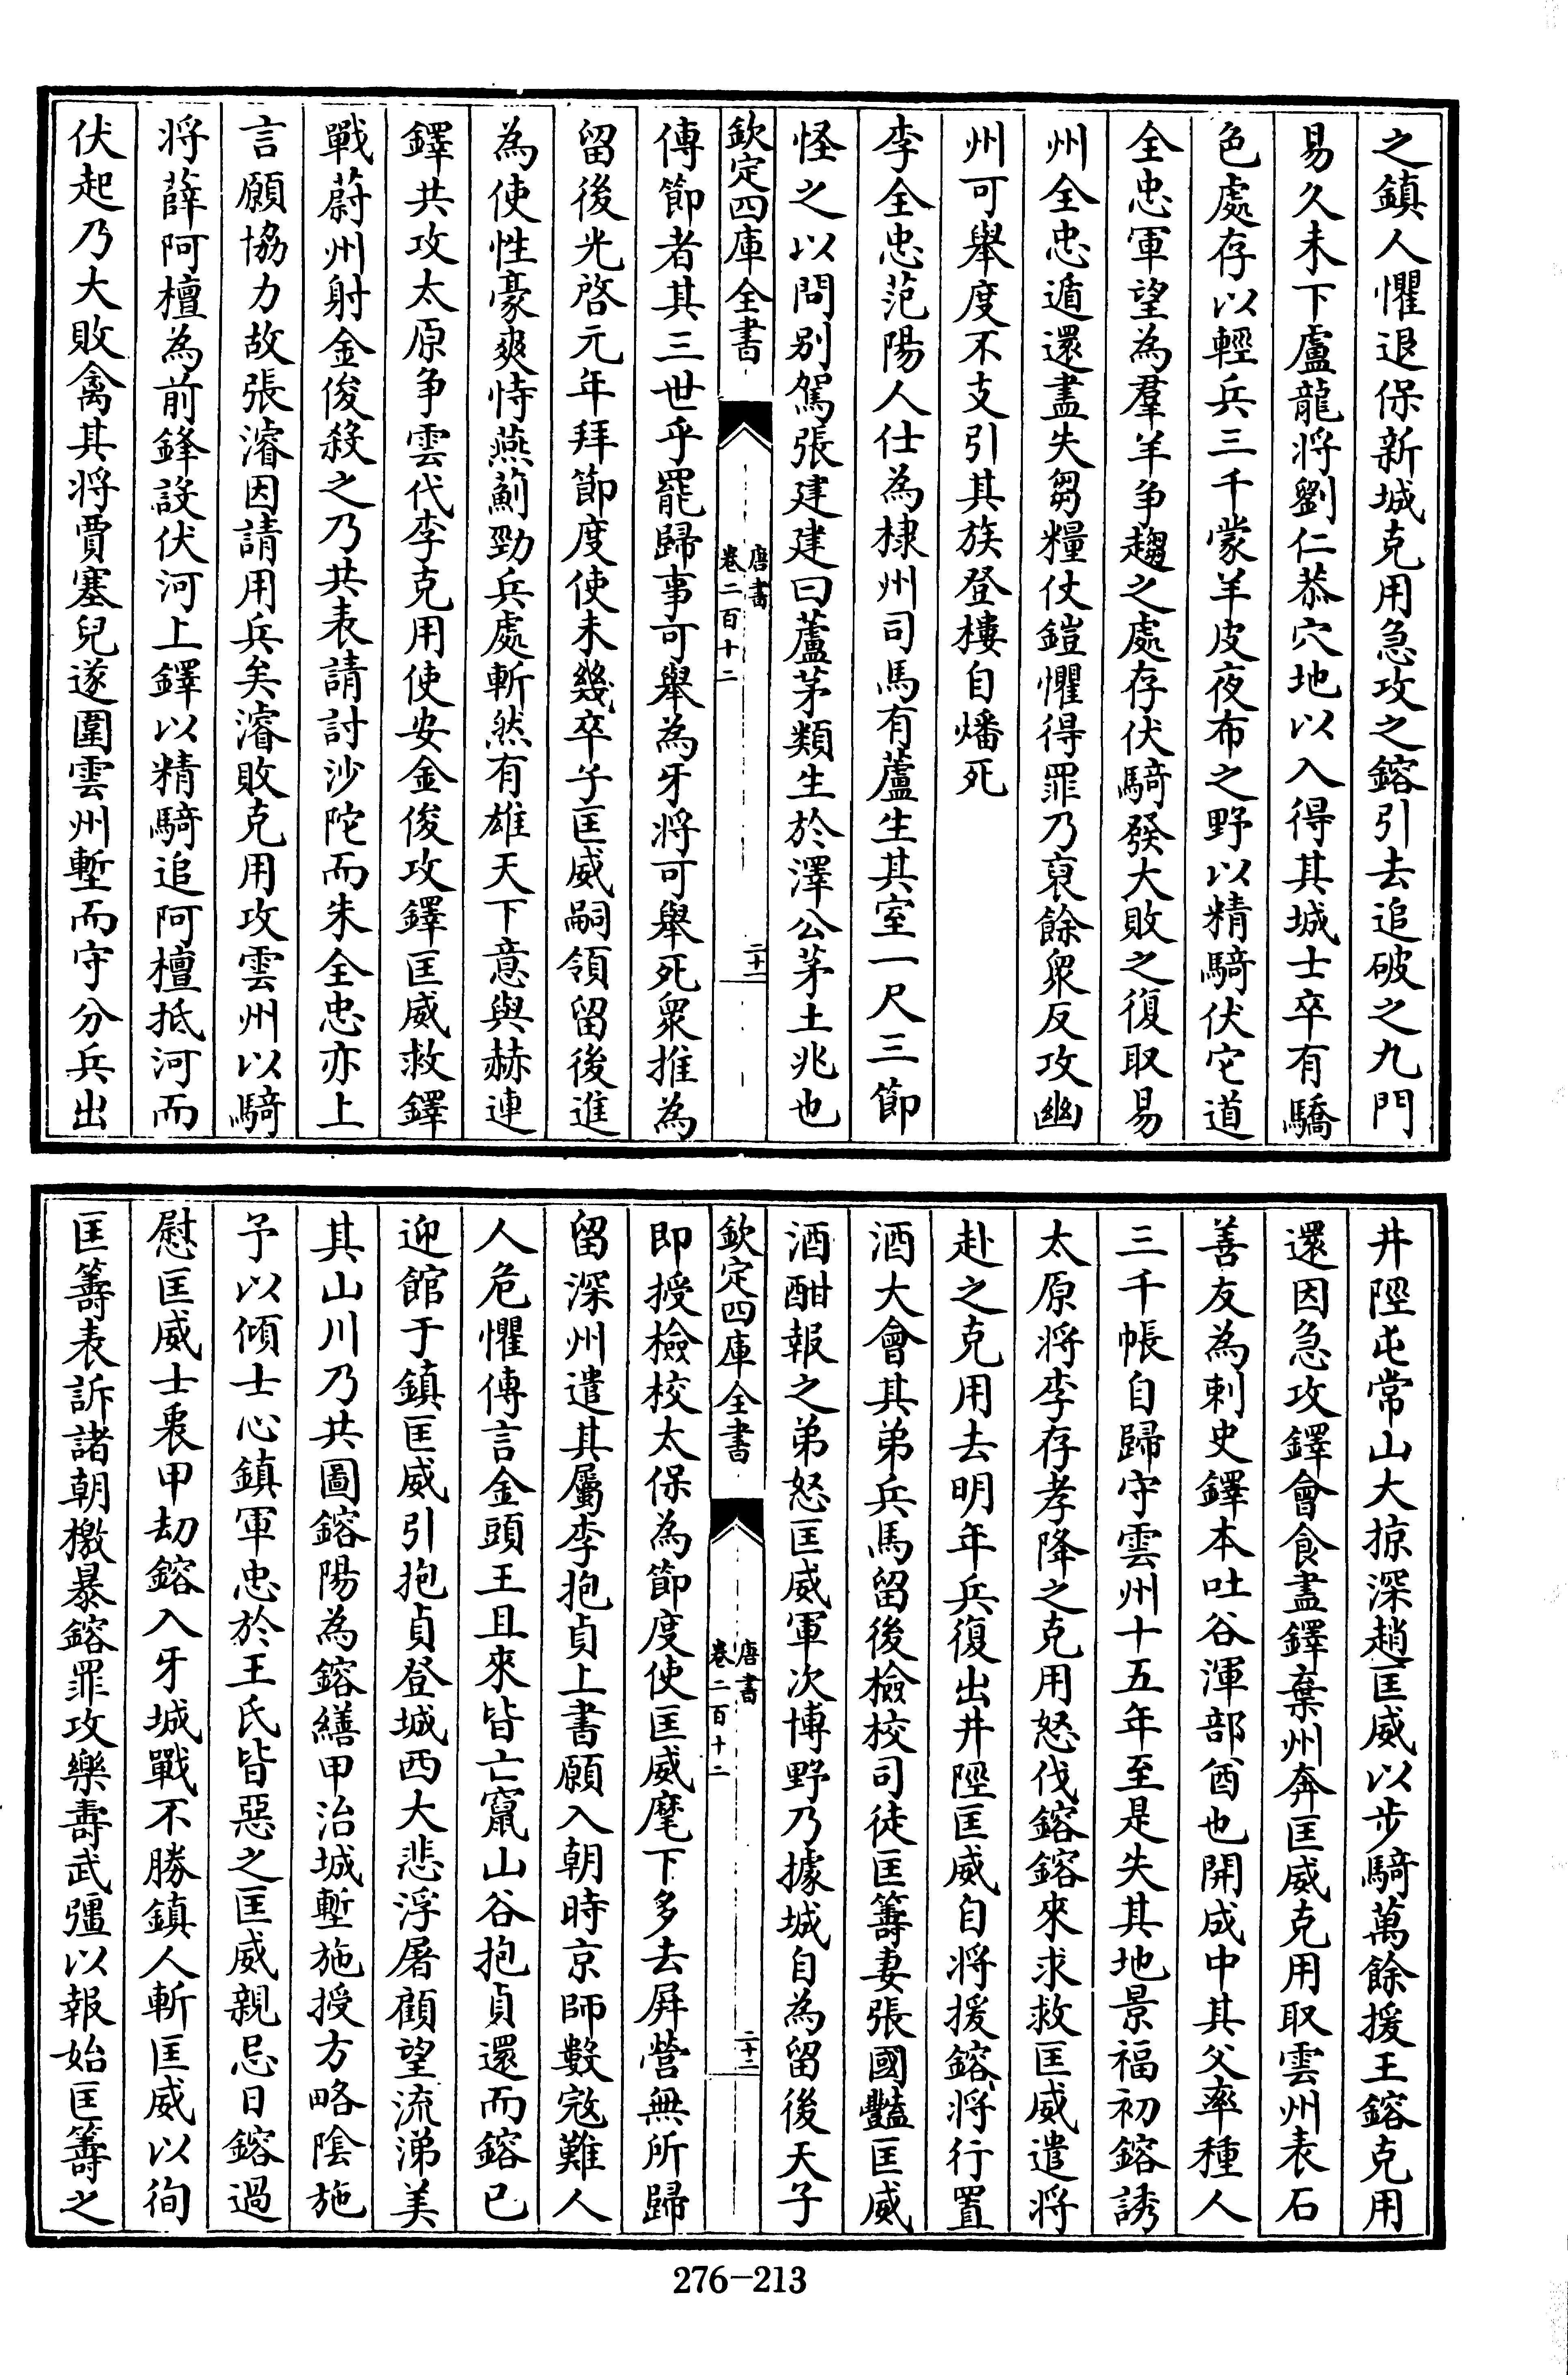 之鎮人懼退保新城克用急攻之鎔引去追破之九門
易久未下盧龍將劉仁恭穴地以入得其城士卒有驕
色處存以輕兵三千蒙羊皮夜布之野以精騎伏它道
全忠軍望為羣羊争趨之處存伏騎發大敗之復取易
州全忠遁還盡失芻糧仗鎧懼得罪乃裒餘衆反攻幽
州可舉度不支引其族登樓自燔死
李全忠范陽人仕為棣州司馬有蘆生其室一尺三節
怪之以問别駕張建建曰蘆茅類生於澤公茅土兆也
欽定四庫全書
唐書
卷二百十二
二十一
傳節者其三世乎罷歸事可舉為牙將可舉死衆推為
留後光啓元年拜節度使未幾卒子匡威嗣領留後進
為使性豪爽恃燕薊勁兵處斬然有雄天下意與赫連
鐸共攻太原争雲代李克用使安金俊攻鐸匡威救鐸
戰蔚州射金俊殺之乃共表請討沙陀而朱全忠亦上
言願協力故張濬因請用兵矣濬敗克用攻雲州以騎
將薛阿檀為前鋒設伏河上鐸以精騎追阿檀抵河而
伏起乃大敗禽其將賈塞兒遂圍雲州塹而守分兵出
井陘屯常山大掠深趙匡威以步騎萬餘援王鎔克用
還因急攻鐸會食盡鐸棄州奔匡威克用取雲州表石
善友為刺史鐸本吐谷渾部酋也開成中其父率種人
三千帳自歸守雲州十五年至是失其地景福初鎔誘
太原將李存孝降之克用怒伐鎔鎔來求救匡威遣將
赴之克用去明年兵復出井陘匡威自將援鎔將行置
酒大會其弟兵馬留後檢校司徒匡籌妻張國豔匡威
酒酣報之弟怒匡威軍次博野乃據城自為留後天子
欽定四庫全書
唐書
卷二百十二
二十二
即授檢校太保為節度使匡威麾下多去屏營無所歸
留深州遣其屬李抱貞上書願入朝時京師數寇難人
人危懼傳言金頭王且來皆亡竄山谷抱貞還而鎔已
迎館于鎮匡威引抱貞登城西大悲浮屠顧望流涕美
其山川乃共圖鎔陽為鎔繕甲治城塹施授方略陰施
予以傾士心鎮軍忠於王氏皆惡之匡威親忌日鎔過
慰匡威士衷甲劫鎔入牙城戰不勝鎮人斬匡威以徇
匡籌表訴諸朝檄暴鎔罪攻樂壽武彊以報始匡籌之
276-213